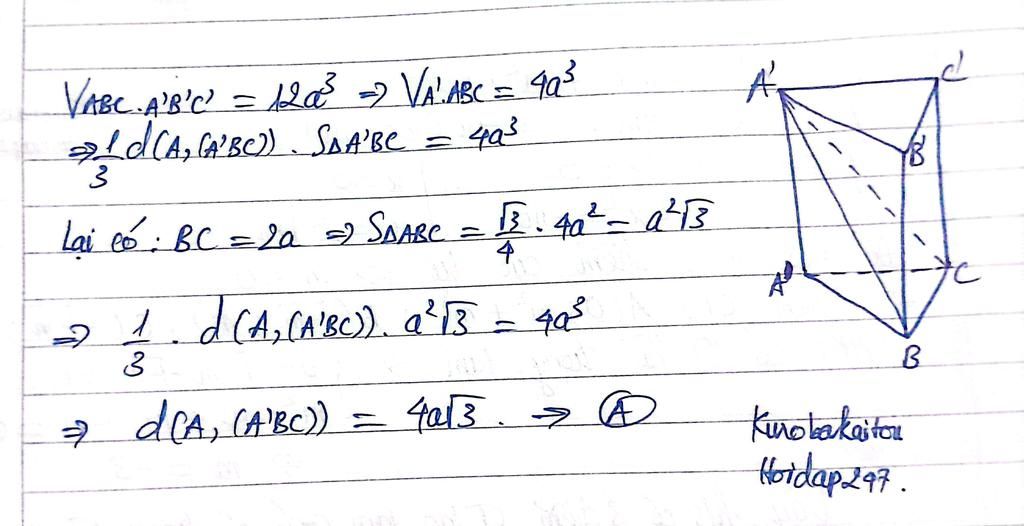 V_{ABC.A'B'C'} = 12a³ ⇒ V_{A'.ABC} = 4a³
⇒ \frac{1}{3} d(A, (A'BC)) . S_{ΔA'BC} = 4a³
Lại có : BC = 2a ⇒ S_{ΔABC} = \frac{√3}{4} . 4a² = a²√3
⇒ \frac{1}{3} . d(A, (A'BC)). a²√3 = 4a³
⇒ d(A, (A'BC)) = 4a√3 . → Ⓐ
A'
C'
B'
A
C
B
Kurobakaitou
Hoidap247.